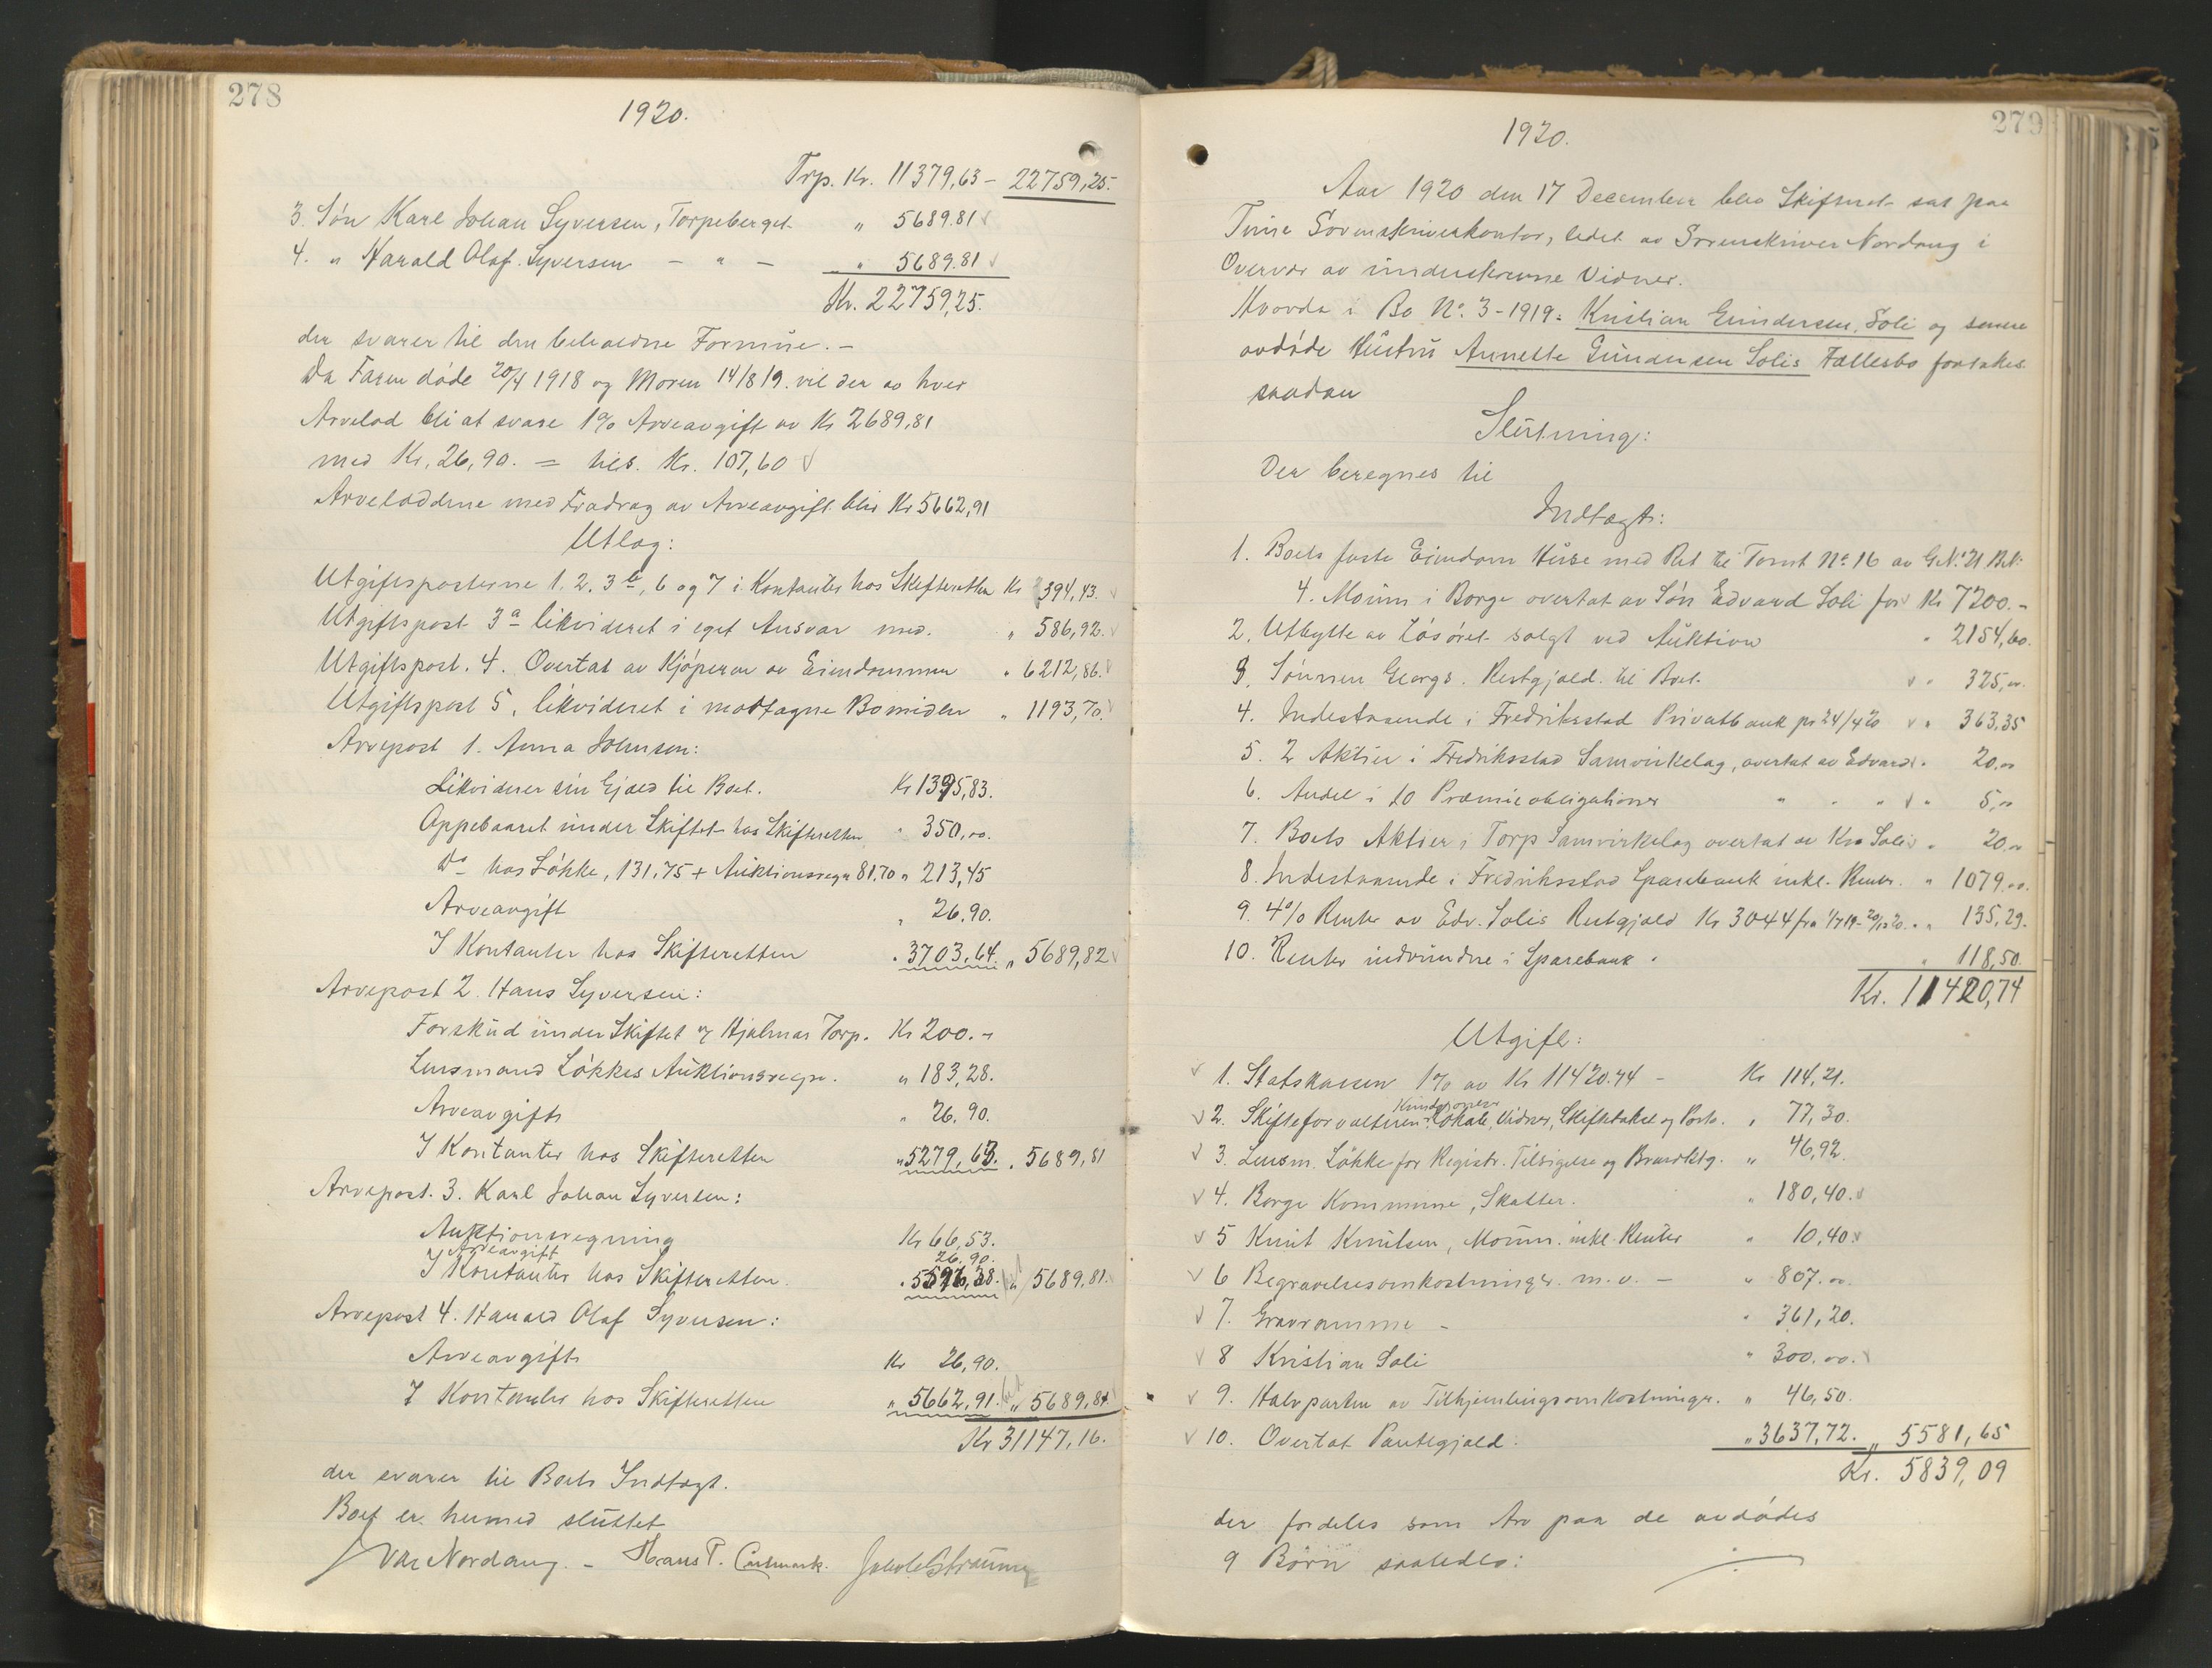 278
1920.
Trp. Kr. 11379,63 - 22759,25.
3. Søn Karl Johan Syversen, Torpeberget " 5689.81
4. " Harald Olaf Syversen - " - " 5689.81
Kr. 22759,25.
der svarer til den beholdne Formue. -
Da Faren døde 20/4 1918 og Moren 14/8 19. vil der av hver
Arvelod bli at svare 1% Arveavgift av Kr 2689,81
med Kr. 26,90. = tils. Kr. 107,60
Arveloddene med Fradrag av Arveavgift blir Kr 5662,91
Utlog:
Utgiftsposterne 1. 2. 3 b, 6 og 7 i Kontanter hos Skifteretten Kr 394,43.
Utgiftspost 3a likvideret i eget Ansvar med. " 586,92.
Utgiftspost. 4. Overtat av Kjøperen av Eiendommen " 6212,86.
Utgiftspost 5, likvideret i mottagne Bomidler " 1193,70.
Arvepost 1. Anna Johnsen:
Likviderer sin Gjæld til Boet. Kr 1395,83.
Oppebaaret under Skiftet hos Skifteretten " 350,00.
Do hos Løkke, 131,75 + Auktionsregn 81.70 " 213,45
Arveavgift " 26.90.
I Kontanter hos Skifteretten " 3703,64. " 5689,82
Arvepost 2. Hans Syversen:
Forskud under Skiftet v/ Hjalmar Torp. Kr 200.-
Lensmand Løkkes Auktionsregn. " 183,28.
Arveavgift " 26.90.
I Kontanter hos Skifteretten " 5279,63. " 5689,81
Arvepost. 3. Karl Johan Syversen:
Auktionsregning Kr 66,53.
Arveavgift 26,90.
I Kontanter hos Skifteretten. " 5596,38. " 5689,81.
Arvepost 4. Harald Olaf Syversen:
Arveavgift Kr 26,90.
I Kontanter hos Skifteretten " 5662,91. " 5689,81
Kr 31147,16.
der svarer til Boets Indtægt.
Boet er hermed sluttet
Nordang. - Hans P.
279
1920.
Aar 1920 den 17 December blev Skifteret sat paa
Tune Sorenskriverkontor, ledet av Sorenskriver Nordang i
Overvær av underskrevne Vidner.
Hvorda i Bo No. 3-1919: Kristian Gundersen Soli og senere
avdøde Hustru Annette Gundersen Solis Fællesbo foretokes
saadan
Slutning:
Der beregnes til
Indtægt:
1. Boets faste Eiendom Huse med Ret til Tomt No 16 av G.N. 21 B.N.
4. Moum i Borge overtat av Søn Edvard Soli for Kr 7200.-
2. Utbytte av Løsøret solgt ved Auktion " 2154,60.
3. Sønnen Georgs. Restgjæld til Boet. " 325,00.
4. Indestaaende i Fredriksstad Privatbank pr 24/4 20 " 363,35
5. 2 Aktier i Fredriksstad Samvirkelag, overtat av Edvard " 20.00
6. Andel i 10 Præmieobligationer " " " " 5,00
7. Boets Aktier i Torp Samvirkelag overtat av Kr. Soli " 20.00
8. Indestaaende i Fredriksstad Sparebank inkl. Renter. " 1079.00.
9. 4% Renter av Edv. Solis Restgjæld Kr 3044 fra " 135,29.
10. Renter indvundne i Sparebank. " 118,50.
Kr. 11420,74
Utgift:
1. Statskassen 1% av Kr 11420.74 - Kr 114,21.
2. Skifteforvalteren Lokale, Vidner, Skiftetakst og Porto. " 77,30.
3. Lensm. Løkke for Registr. Tilsigelse og Brandktg. " 46,92.
4. Borge Kommune, Skatter. " 180,40.
5 Knut Knutsen, Moum. inkl. Renter " 10,40
6 Begravelsesomkostninger. m. v. - " 807.00.
7. Gravramme - " 361,20.
8 Kristian Soli " 300.00.
9. Halvparten av Tilhjemlingsomkostninger. " 46,50.
10. Overtat Pantegjæld. " 3637,72. " 5581,65
Kr. 5839,09
der fordeles som Arv paa de avdødes
9 Børn saaledes: